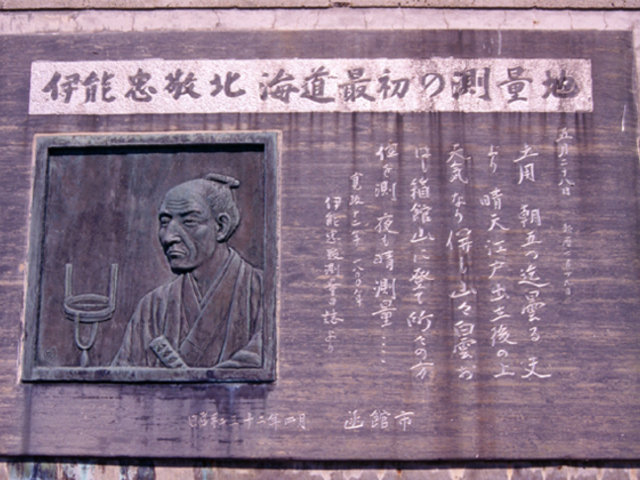 伊能忠敬北海道最初の測量地
五月二十八日
土用 朝五つ迄曇る 夫
より 晴天江戸出立後の上
天気なり 併し山々白雲お
ほし箱館山に登て所々の方
位を測 夜も晴測量……
寛政十二年 一八〇〇年
伊能忠敬測量日誌より
昭和三十二年四月 函館市